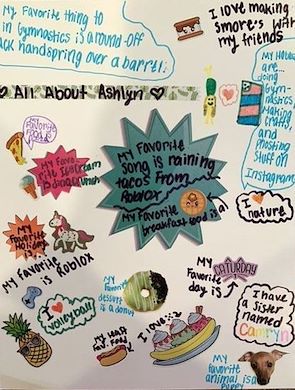 My Favorite thing to
in Gymnastics is a round-off
back handspring over a barrel!
I love making
smores with
my friends
My Hobbies
are...
doing
Gym-
nastics
Making
Crafts,
and
Photing
Stuff on
Instagram
♡ All About Ashlyn ♡
My
Favorite
food is
My Favo-
rite IceCream
is
My Favorite
song is raining
tacos From
Roblox
My Favorite
breakfast food is a
My
Favorite
Holiday
is
I ♥
nature
My favorite
is Roblox
My
Favorite
day is
CATURDAY
I ♥
volleyball
My
Favorite
dessert
is a donut
I love :
I have
a Sister
named
Camryn
My
Fav. Food
My
favorite
animal is a
Puppy